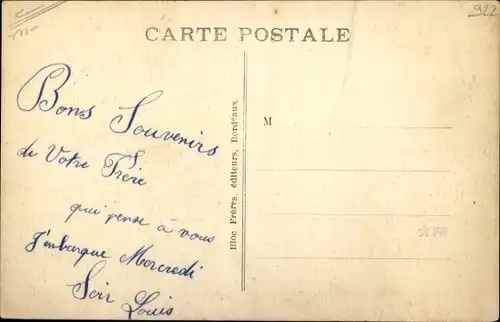 922
CARTE POSTALE
Bons Souvenirs
de Votre Frère
qui pense à vous
J'embarque Mercredi
Soir Louis
Bloc Frères, éditeurs, Bordeaux
M